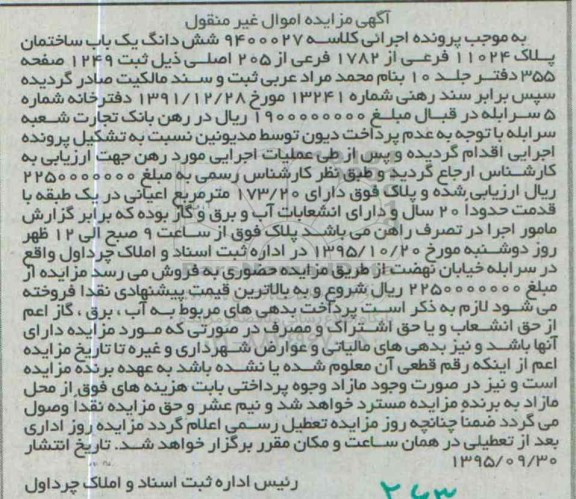 آگهی مزایده اموال غیر منقول
به موجب پرونده اجرائی کلاسه ۹۴۰۰۰۲۷ شش دانگ یک باب ساختمان
پلاک ۱۱۰۲۴ فرعی از ۱۷۸۲ فرعی از ۲۰۵ اصلی ذیل ثبت ۱۲۴۹ صفحه
۳۵۵ دفتر جلد ۱۰ بنام محمد مراد عربی ثبت و سند مالکیت صادر گردیده
سپس برابر سند رهنی شماره ۱۳۲۴۱ مورخ ۱۳۹۱/۱۲/۲۸ دفترخانه شماره
۵ سرابله در قبال مبلغ ۱۹۰۰۰۰۰۰۰۰ ریال در رهن بانک تجارت شعبه
سرابله با توجه به عدم پرداخت دیون توسط مدیونین نسبت به تشکیل پرونده
اجرایی اقدام گردیده و پس از طی عملیات اجرایی مورد رهن جهت ارزیابی به
کارشناس ارجاع گردید و طبق نظر کارشناس رسمی به مبلغ ۲۲۵۰۰۰۰۰۰۰
ریال ارزیابی شده و پلاک فوق دارای ۱۷۳/۲۰ مترمربع اعیانی در یک طبقه با
قدمت حدودا ۲۰ سال و دارای انشعابات آب و برق و گاز بوده که برابر گزارش
مامور اجرا در تصرف راهن می باشد پلاک فوق از ساعت ۹ صبح الی ۱۲ ظهر
روز دوشنبه مورخ ۱۳۹۵/۱۰/۲۰ در اداره ثبت اسناد و املاک چرداول واقع
در سرابله خیابان نهضت از طریق مزایده حضوری به فروش می رسد مزایده از
مبلغ ۲۲۵۰۰۰۰۰۰۰ ریال شروع و به بالاترین قیمت پیشنهادی نقدا فروخته
می شود لازم به ذکر است پرداخت بدهی های مربوط به آب ، برق ، گاز اعم
از حق انشعاب و یا حق اشتراک و مصرف در صورتی که مورد مزایده دارای
آنها باشد و نیز بدهی های مالیاتی و عوارض شهرداری و غیره تا تاریخ مزایده
اعم از اینکه رقم قطعی آن معلوم شده یا نشده باشد به عهده برنده مزایده
است و نیز در صورت وجود مازاد وجوه پرداختی بابت هزینه های فوق از محل
مازاد به برنده مزایده مسترد خواهد شد و نیم عشر و حق مزایده نقداً وصول
می گردد ضمناً چنانچه روز مزایده تعطیل رسمی اعلام گردد مزایده روز اداری
بعد از تعطیلی در همان ساعت و مکان مقرر برگزار خواهد شد. تاریخ انتشار
۱۳۹۵/۰۹/۳۰
رئیس اداره ثبت اسناد و املاک چرداول
۲۶۳